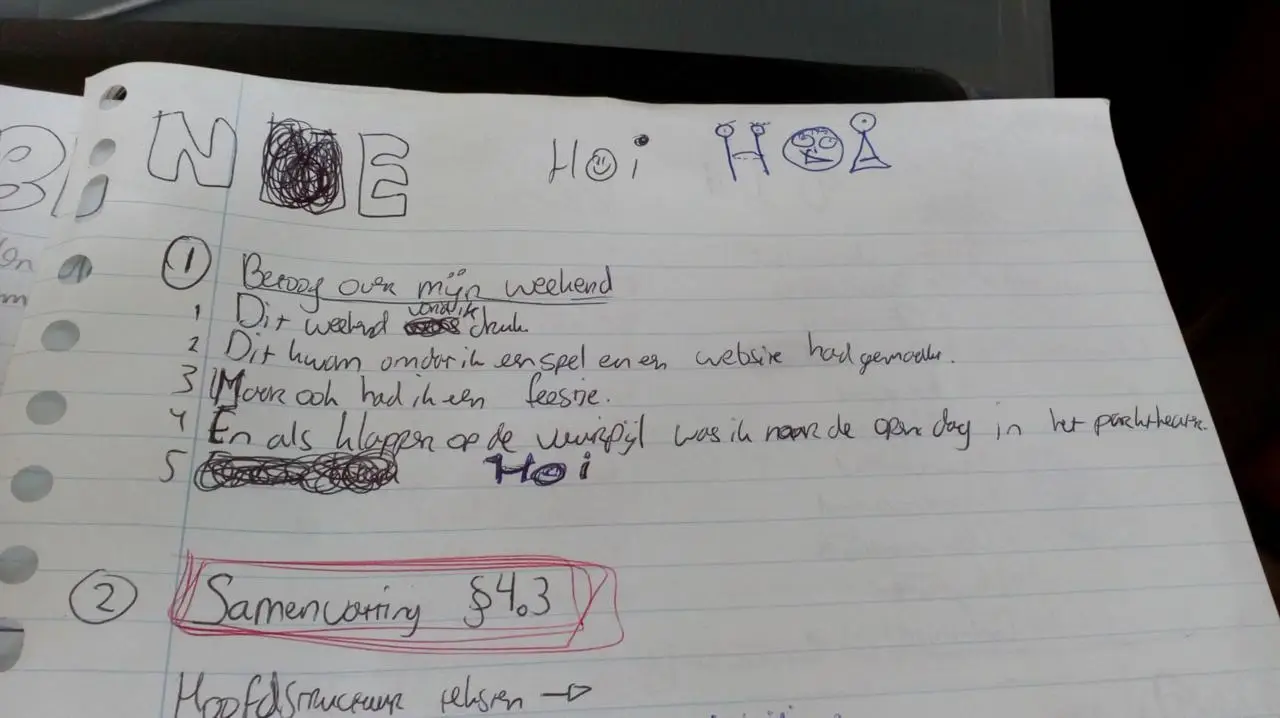 N E Hoi HOi
1 Betoog over mijn weekend
1 Dit weekend vond ik druk.
2 Dit kwam omdat ik een spel en een website had gemaakt.
3 Maar ook had ik een feestje.
4 En als klapper op de vuurpijl was ik naar de open dag in het parktheater.
5 Hoi
2 Samenvatting §4.3
Hoofdstructuur teksten →